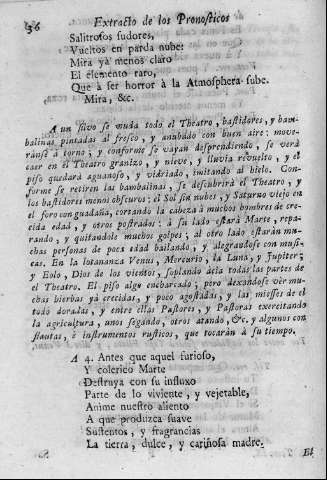 36 Extracto de los Pronosticos
Salitrosos sudores,
Vueltos en parda nube:
Mira yà menos claro
El elemento raro,
Que à ser horror à la Atmosphera sube.
Mira, &c.
A un silvo se muda todo el Theatro, bastidores, y bam-
balinas pintadas al fresco, y anubado con buen aire: move-
rànse à torno; y conforme se vayan desprendiendo, se verà
caer en el Theatro granizo, y nieve, y lluvia revuelto, y el
piso quedarà aguanoso, y vidriado, imitando al hielo. Con-
forme se retiren las bambalinas, se descubrirà el Theatro, y
los bastidores menos obscuros: el Sol sin nubes, y Saturno viejo en
el foro con guadaña, cortando la cabeza à muchos hombres de cre-
cida edad, y otros postrados: à su lado estarà Marte, repa-
rando, y quitandole muchos golpes; al otro lado estaràn mu-
chas personas de poca edad bailando, y alegrandose con musi-
cas. En la lontananza Venus, Mercurio, la Luna, y Jupiter;
y Eolo, Dios de los vientos, soplando àcia todas las partes de
el Theatro. El piso algo encharcado; pero dexandose vèr mu-
chas hierbas yà crecidas, y poco agostadas, y las miesses de el
todo doradas, y entre ellas Pastores, y Pastoras exercitando
la agricultura, unos segando, otros atando, &c. y algunos con
flautas, è instrumentos rusticos, que tocaràn à su tiempo.
A 4. Antes que aquel furioso,
Y colerico Marte
Destruya con su influxo
Parte de lo viviente, y vejetable,
Anime nuestro aliento
A que produzca suave
Sustentos, y fragrancias
La tierra, dulce, y cariñosa madre.
El